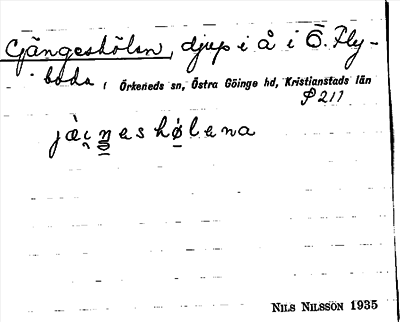 Gjängeshölsn, djup i å i Ö. Fly-
boda, Örkeneds sn, Östra Göinge hd, Kristianstads län
P 211
jài̯n̥eshø̱lena
NILS NILSSON 1935